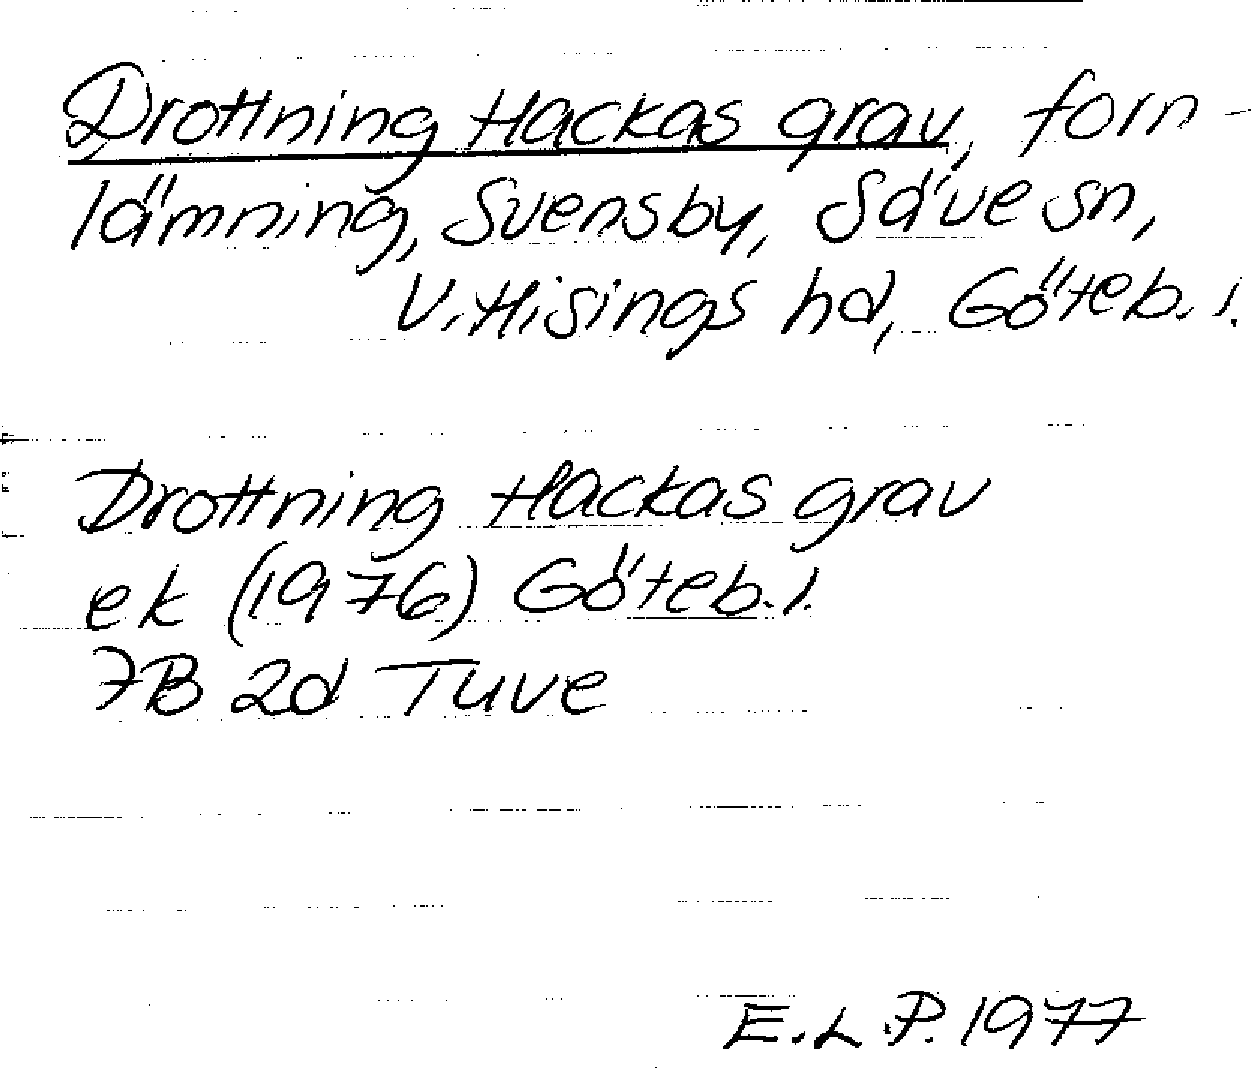 Drottning Hackas grav, forn-
lämning, Svensby, Säve sn,
V. Hisings hd, Göteb. l.
Drottning Hackas grav
ek (1976) Göteb. l.
7B 2d Tuve
E. L. P. 1977